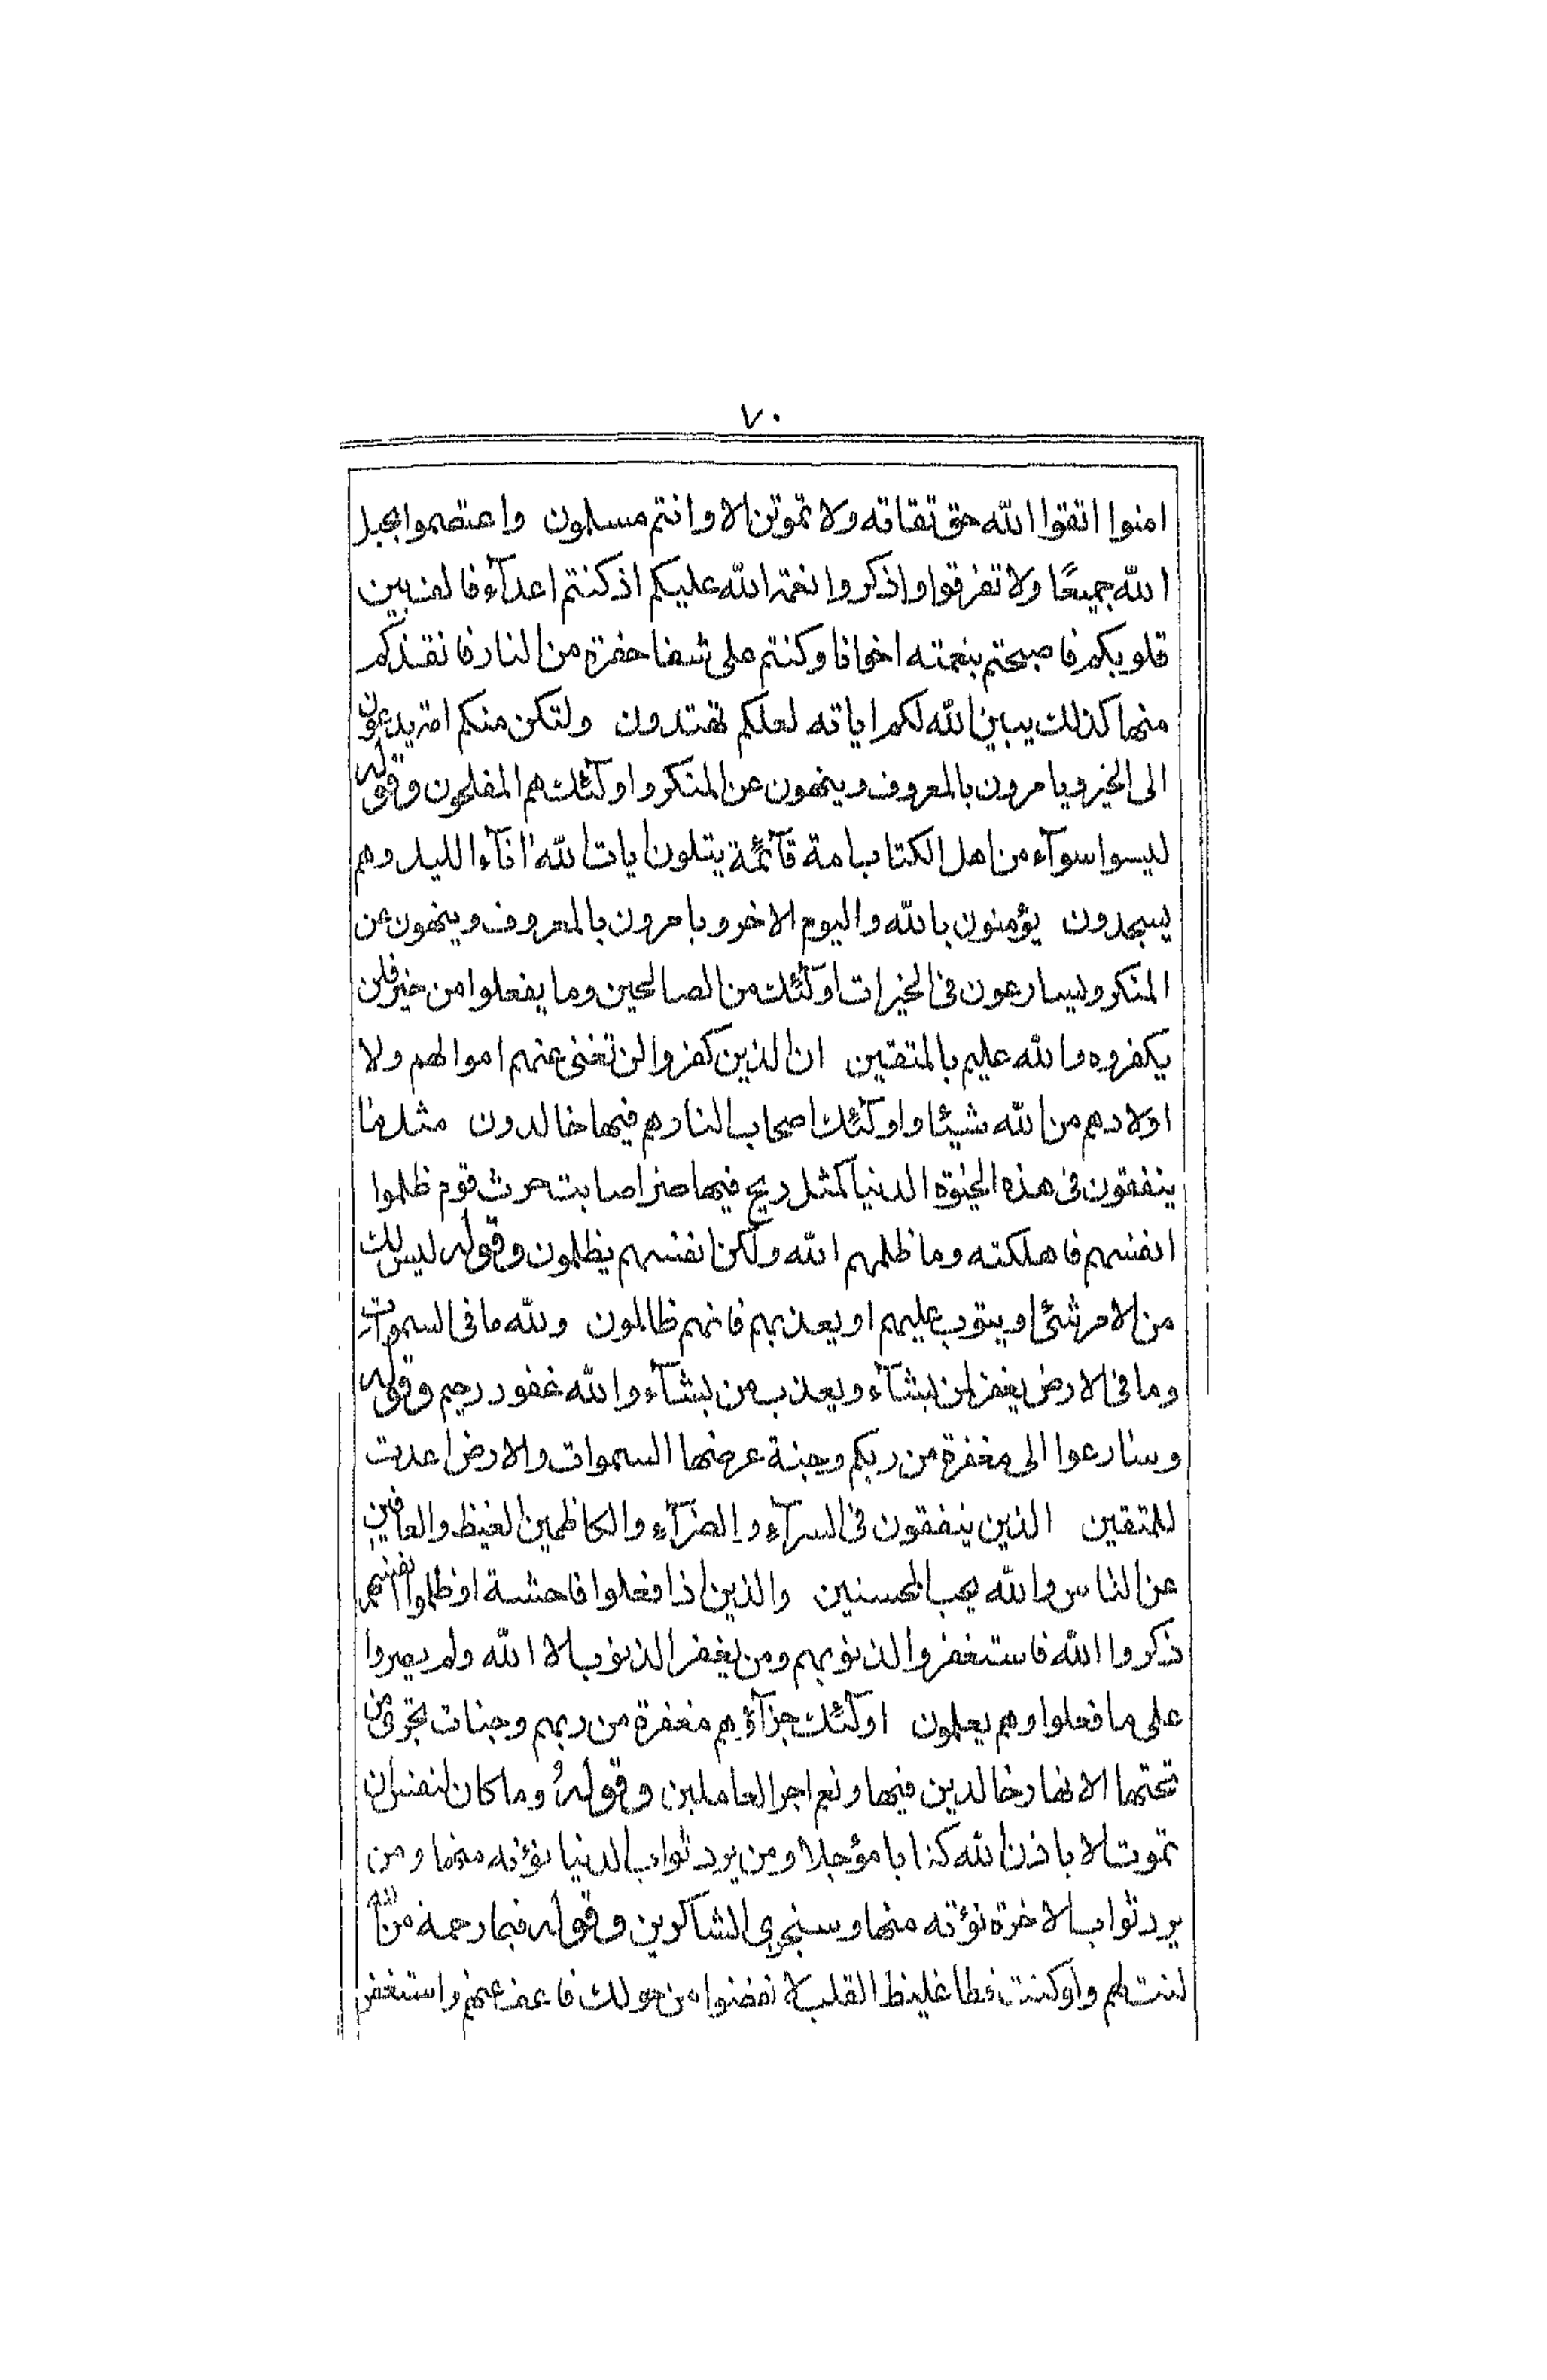 ٧٠
امنوا اتقوا الله حق تقاته ولا تموتن الا وانتم مسلمون واعتصموا بحبل
الله جميعًا ولا تفرقوا واذكروا نعمة الله عليكم اذ كنتم اعدآء فالف بين
قلوبكم فاصبحتم بنعمته اخوانا وكنتم على شفا حفرة من النار فانقذكم
منها كذلك يبين الله لكم اياته لعلكم تهتدون ولتكن منكم امة يدعون
الى الخير ويامرون بالمعروف وينهون عن المنكر واولٓئك هم المفلحون وقوله
ليسوا سوآء من اهل الكتاب امة قآئمة يتلون ايات الله انآء الليل وهم
يسجدون يؤمنون بالله واليوم الاخر ويامرون بالمعروف وينهون عن
المنكر ويسارعون فى الخيرات اولٓئك من الصالحين وما يفعلوا من خير فلن
يكفروه والله عليم بالمتقين ان الذين كفروا لن تغنى عنهم اموالهم ولا
اولادهم من الله شيئا واولٓئك اصحاب النار هم فيها خالدون مثل ما
ينفقون فى هذه الحيوة الدنيا كمثل ريح فيها صر اصابت حرث قوم ظلموا
انفسهم فاهلكته وما ظلمهم الله ولكن انفسهم يظلمون وقوله ليس لك
من الامر شئ او يتوب عليهم او يعذبهم فانهم ظالمون ولله ما فى السموات
وما فى الارض يغفر لمن يشآء ويعذب من يشآء والله غفور رحيم وقوله
وسارعوا الى مغفرة من ربكم وجنة عرضها السموات والارض اعدت
للمتقين الذين ينفقون فى السرآء والضرآء والكاظمين الغيظ والعافين
عن الناس والله يحب المحسنين والذين اذا فعلوا فاحشة او ظلموا انفسهم
ذكروا الله فاستغفروا لذنوبهم ومن يغفر الذنوب الا الله ولم يصروا
على ما فعلوا وهم يعلمون اولٓئك جزآؤهم مغفرة من ربهم وجنات تجرى من
تحتها الانهار خالدين فيها ونعم اجر العاملين وقولهُ وما كان لنفس ان
تموت الا باذن الله كتابا مؤجلا ومن يرد ثواب الدنيا نؤته منها ومن
يرد ثواب الاخرة نؤته منها وسنجزى الشاكرين وقوله فبما رحمة من الله
لنت لهم ولو كنت فظا غليظ القلب لانفضوا من حولك فاعف عنهم واستغفر